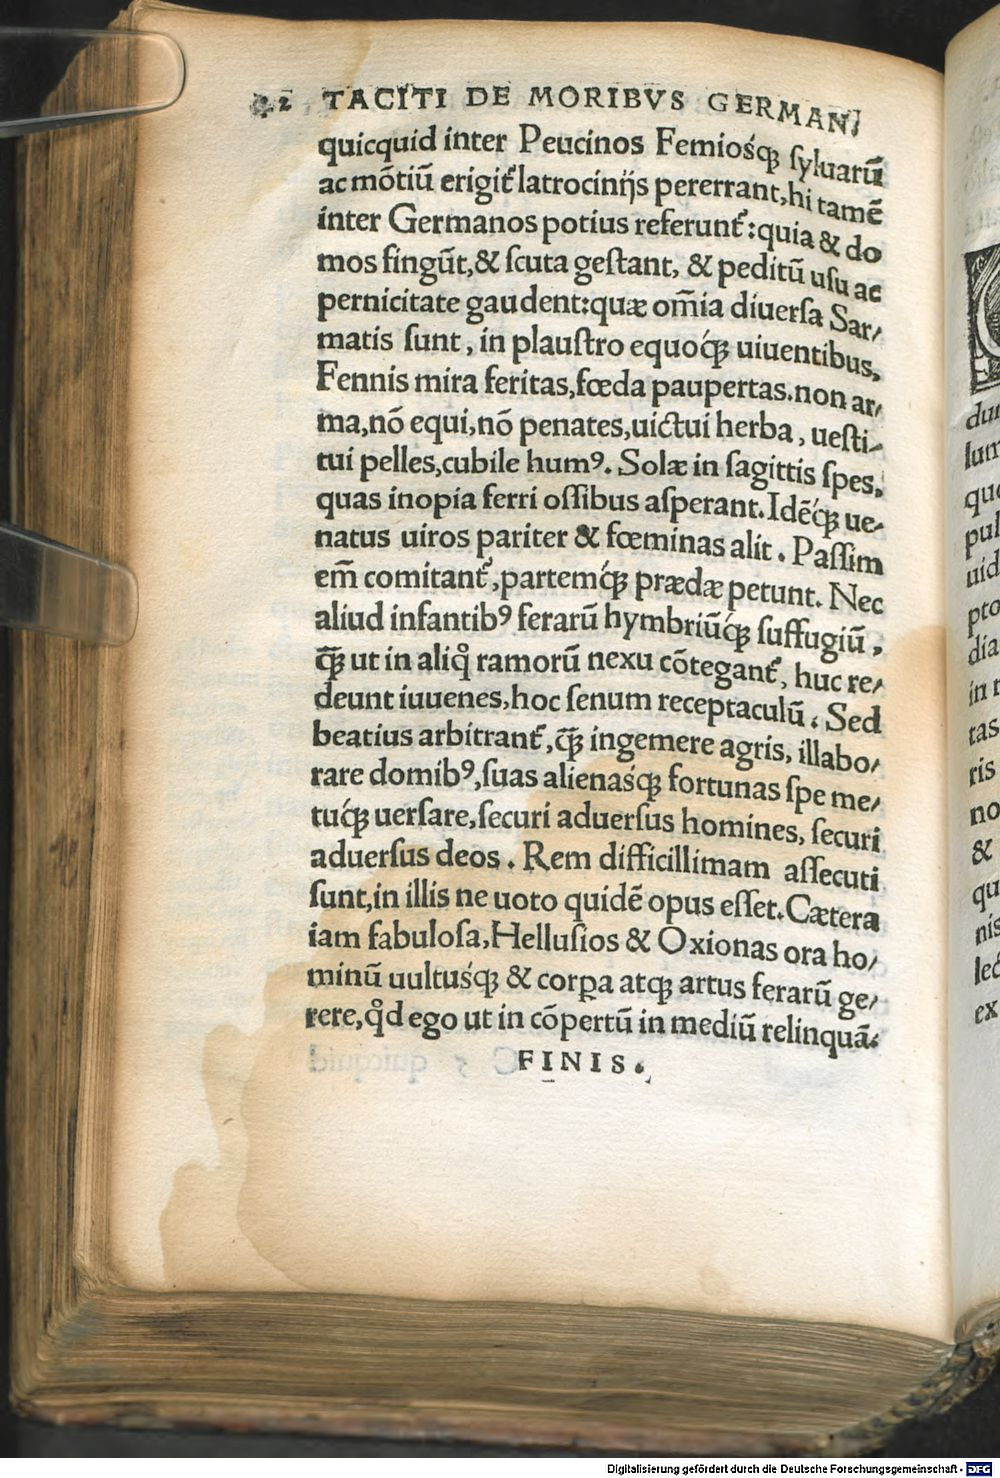 TACITI DE MORIBVS GERMAN,
quicquid inter Peucinos Femiosq́; syluarũ
ac mõtiũ erigit᷑ latrocinijs pererrant, hi tamẽ
inter Germanos potius referunt᷑: quia & do
mos fingũt, & scuta gestant, & peditũ usu ac
pernicitate gaudent: quæ om̃ia diuersa Sar/
matis sunt, in plaustro equoq́; uiuentibus,
Fennis mira feritas, fœda paupertas. non ar/
ma, nõ equi, nõ penates, uictui herba, uesti/
tui pelles, cubile humꝰ. Solæ in sagittis spes,
quas inopia ferri ossibus asperant. Idẽq́; ue/
natus uiros pariter & fœminas alit. Passim
em̃ comitant᷑, partemq́; prædæ petunt. Nec
aliud infantibꝰ ferarũ hymbriũq́; suffugiũ,
q̃; ut in aliq̊ ramorũ nexu cõtegant᷑, huc re/
deunt iuuenes, hoc senum receptaculũ. Sed
beatius arbitrant᷑, q̃; ingemere agris, illabo/
rare domibꝰ, suas alienasq́; fortunas spe me/
tuq́; uersare, securi aduersus homines, securi
aduersus deos. Rem difficillimam assecuti
sunt, in illis ne uoto quidẽ opus esset. Cætera
iam fabulosa, Hellusios & Oxionas ora ho/
minũ uultusq́; & corꝑa atq; artus ferarũ ge/
rere, q̊d ego ut in cõpertũ in mediũ relinquã.
FINIS.
dun
lum
que
pul
uid
pto
dia
in r
tas
ris
no
&
qu
nis
lec
ex
Digitalisierung gefördert durch die Deutsche Forschungsgemeinschaft - DFG